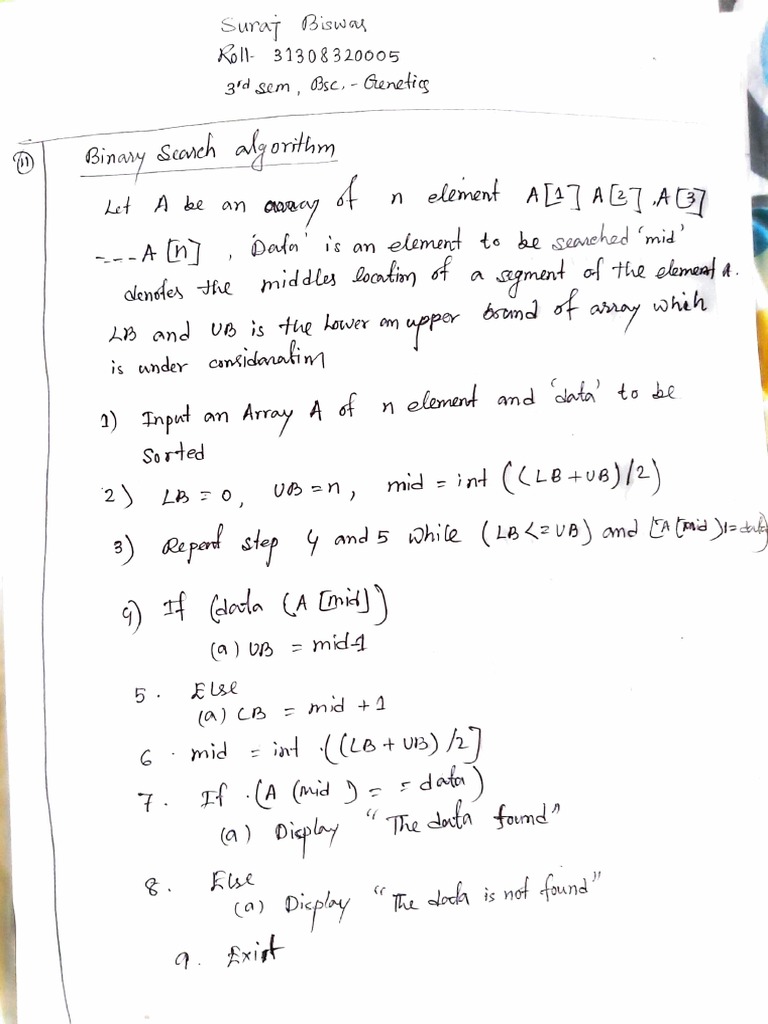 Suraj Biswas
Roll- 31308320005
3rd sem, Bsc. - Genetics
11 Binary Search algorithm
Let A be an array of n element A[1] A[2], A[3]
---- A[n], 'Data' is an element to be searched 'mid'
denotes the middles location of a segment of the element A.
LB and UB is the Lower an upper bound of array which
is under consideration
1) Input an Array A of n element and 'data' to be
Sorted
2) LB = 0, UB = n, mid = int ((LB + UB)/2)
3) Repeat step 4 and 5 while (LB <= UB) and [A[mid) != data)
4) If (data (A [mid])
(a) UB = mid-1
5. Else
(a) LB = mid + 1
6. mid = int ((LB + UB) /2]
7. If (A (mid) = = data)
(a) Display "The data found"
8. Else
(a) Display "The data is not found"
9. Exist